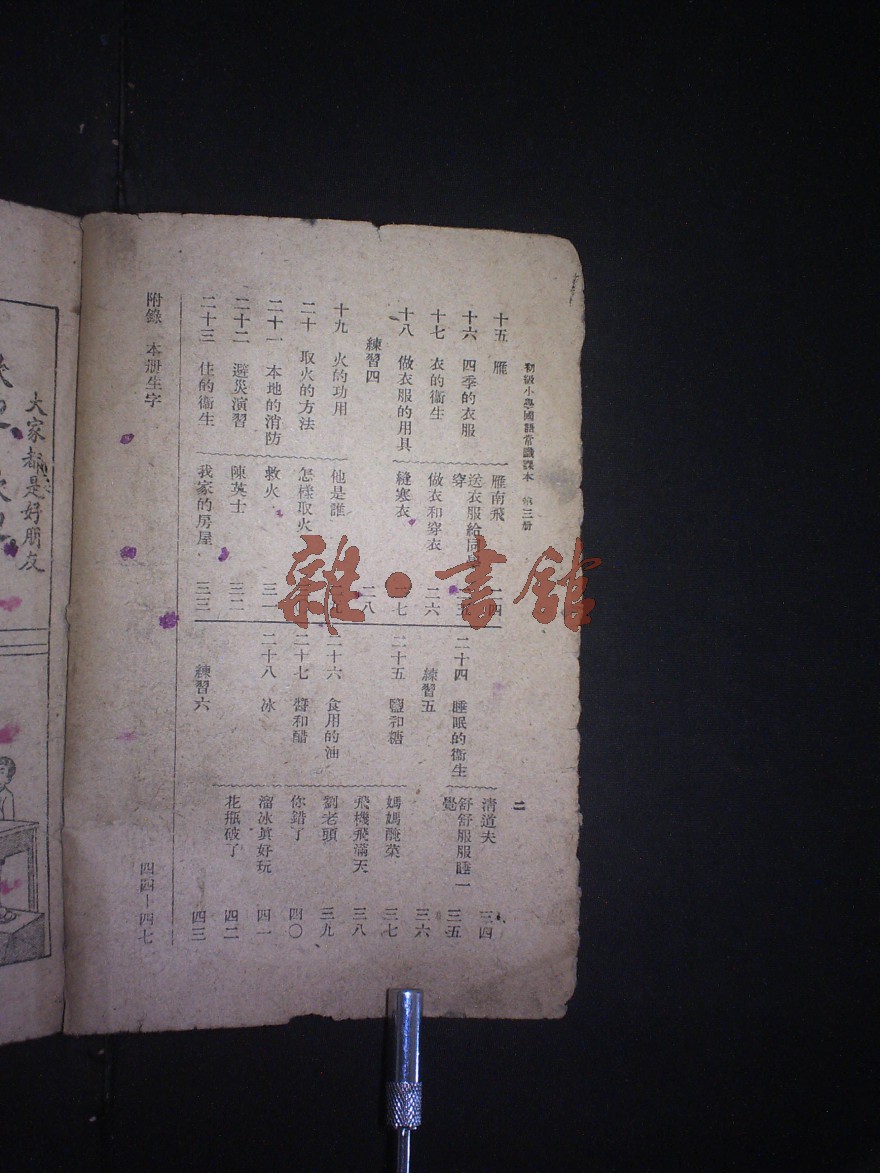 初級小學國語常識課本 第三册
二
十五 雁 雁南飛 二四
十六 四季的衣服 送衣服給同學穿 二五
十七 衣的衞生 做衣和穿衣 二六
十八 做衣服的用具 縫寒衣 二七
練習四 二八
十九 火的功用 他是誰 二九
二十 取火的方法 怎樣取火
二十一 本地的消防 救火 三一
二十二 避災演習 陳英士 三二
二十三 住的衞生 我家的房屋 三三
清道夫 三四
二十四 睡眠的衞生 舒舒服服睡一覺 三五
練習五 三六
二十五 鹽和糖 媽媽醃菜 三七
飛機飛滿天 三八
二十六 食用的油 劉老頭 三九
二十七 醬和醋 你錯了 四〇
二十八 冰 溜冰眞好玩 四一
花瓶破了 四二
練習六 四三
附錄 本册生字 四四—四七
大家都是好朋友
雜·書館